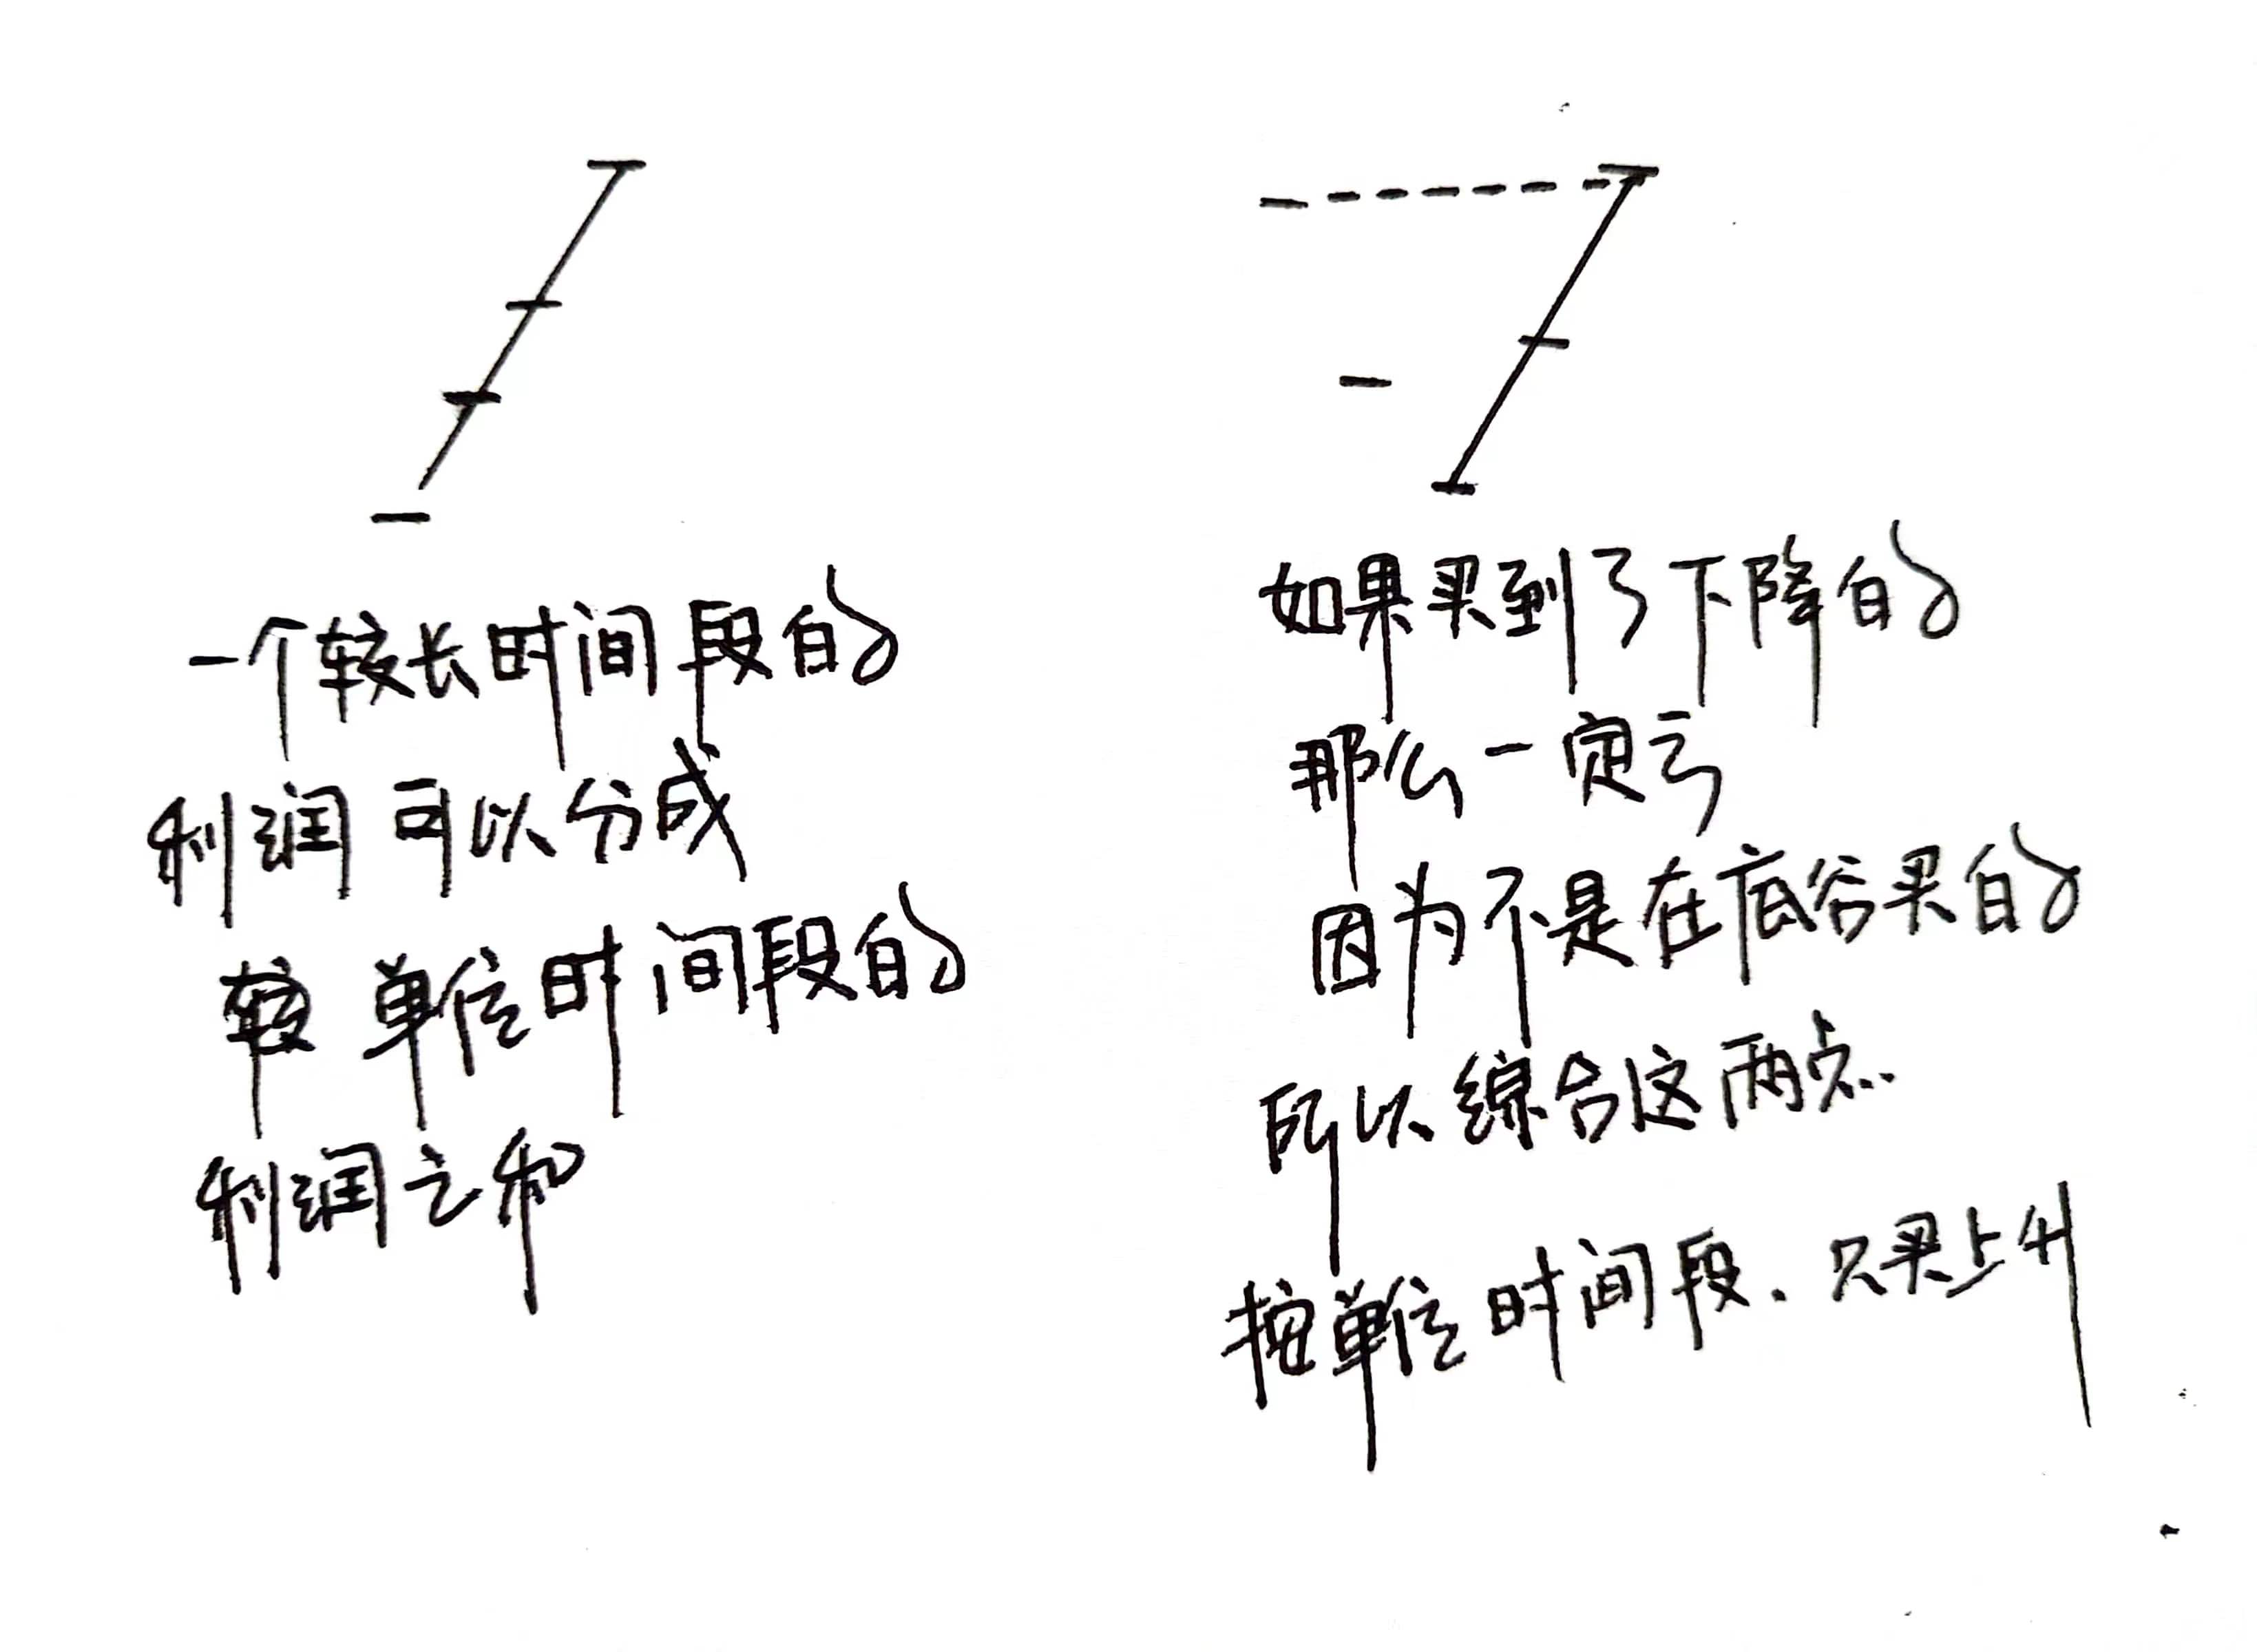 一个较长时间段的
利润可以分成
单位时间段的
利润之和
如果买到了下降的
那么一定亏
因为不是在底谷买的
所以综合这两点
按单位时间段.只买上升